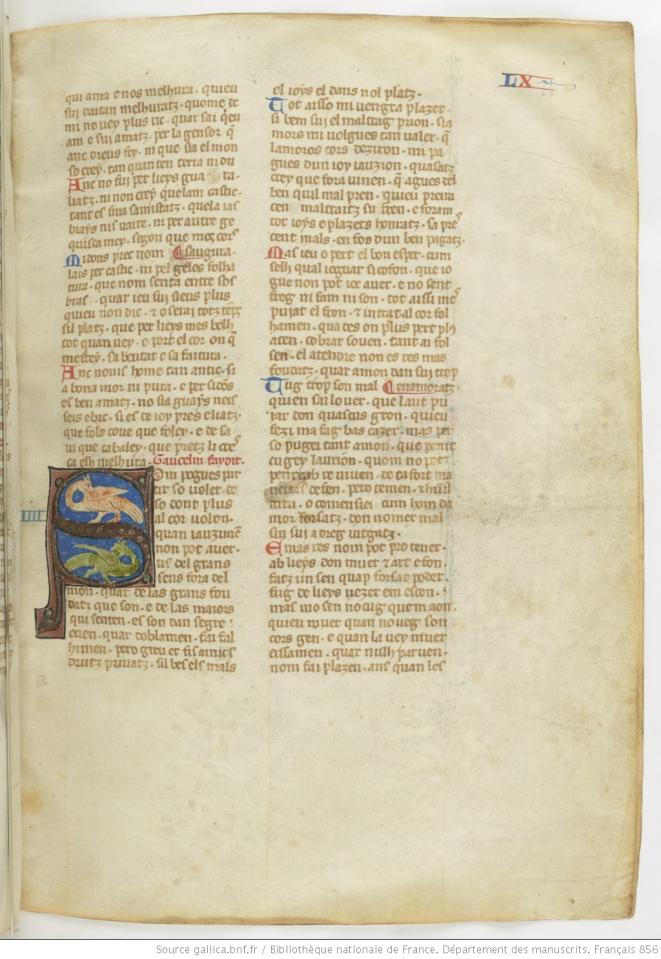 LX
qui ama e nos melhura · qu ieu
sui daitan melhuratz · quome de
mi no vey plus ric · quar sai q̃eu
am e sui amatz · per la gensor q̃
anc dieus fey · ni que sia el mon
so crey · tan quan ten terra ni du
Anc no fui per lieys gua ra
liatz · ni non crey quelam castic ·
tant es fina samistatz · quela ias
ni per autre ge
quisea mey · segon que moz cors
Mi dons prec nom
lais per castic · ni pel gelos folha
tura · que nom senta entre sos
bras · quar ieu sui sieus plus
quieu non dic · e o serai totz tẽps
sil platz · que per lieys mes belh
tot quan vey · e port el cor on q̃
mestey · sa beutat e sa faitura ·
Anc nouis home tan antic · si
a bona mor ni pura · e per sidõs
es ben amatz · no sia guays neis
seis ebric · si es de ioy pres eliatz ·
que fols coue que foley · e de sa
ui que cabaley · que pretz li cre
ca elh melhura · Gaucelm faydit ·
om pogues par
tir so voler de
so dont plus
al cor volon ·
quan iauzimẽ
non pot aver ·
us del grans
sens fora del
mon · quar de las grans fou
datz que son · e de las maiors
qui senten · es son dan segre
quar doblamen · fai fal
himen · pero greu er fis amics
drutz privatz · sil bes els mals
el ioys el dans nol platz ·
Tot aisso mi vengra plazer ·
si bem sui el maltrag prion · sia
mors mi volgues tan valer · q̃
lamoros cors deziron · mi pa
gues dun ioy iauzion · quasatz
crey que fora viuen · q̃ agues del
ben quil mal pren · quieu prera
cen maltraitz su fren · e foram
tot ioys e plazers honratz · sa pre
cent mals · en fos dun ben pagatz ·
Mas ieu o pert el bon esper · cum
selh qual ioguar si cofon · que io
gue non pot ioc auer · e no sent
freg ni fam ni son · tot aissi me
puiat el fron · e intrat al cor fol
hamen · qua des on plus pert plꝰ
aten · cobrar soven · tant ai fol
sen · el atendre non es res mas
foudatz · quar amon dan sui trop
Tug trop son mal enamoratz ·
quien sai lo ver · que laut pu
iar don quascus gron · quieu
fezi ma fag bas cazer · mas per
so pugei tant amon · que penre
cugey laurion · quom no pot
penre ab re viven · de ta fort ma
neiras defen · pero temen · z humil
cum hom da
mor forsatz · don no mer mal
sin sui a dreg iutgatz ·
E mas res nom pot pro tener ·
ab lieys don muer e art e fon ·
fatz un sen quap forsar poder ·
fug de lieys vezer em escon ·
mas mo sen no cug que maon ·
quieu muer quan no veg son
cors gen · e quan la vey muer
eissamen · quar nulh parven ·
nom fai plazen · ans quan les
IIII
Source gallica.bnf.fr / Bibliothèque nationale de France. Département des manuscrits. Français 856